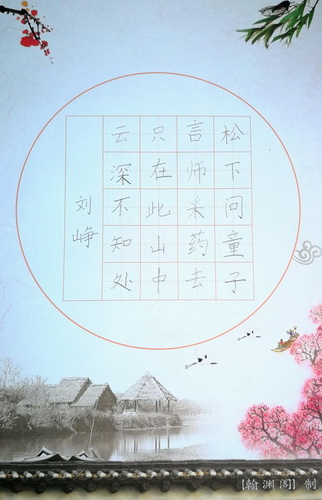 松下问童子
言师采药去
只在此山中
云深不知处
刘峥
【翰渊阁】制